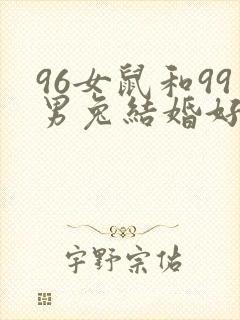 96女鼠和99
男兔結婚好
宇野宗佑